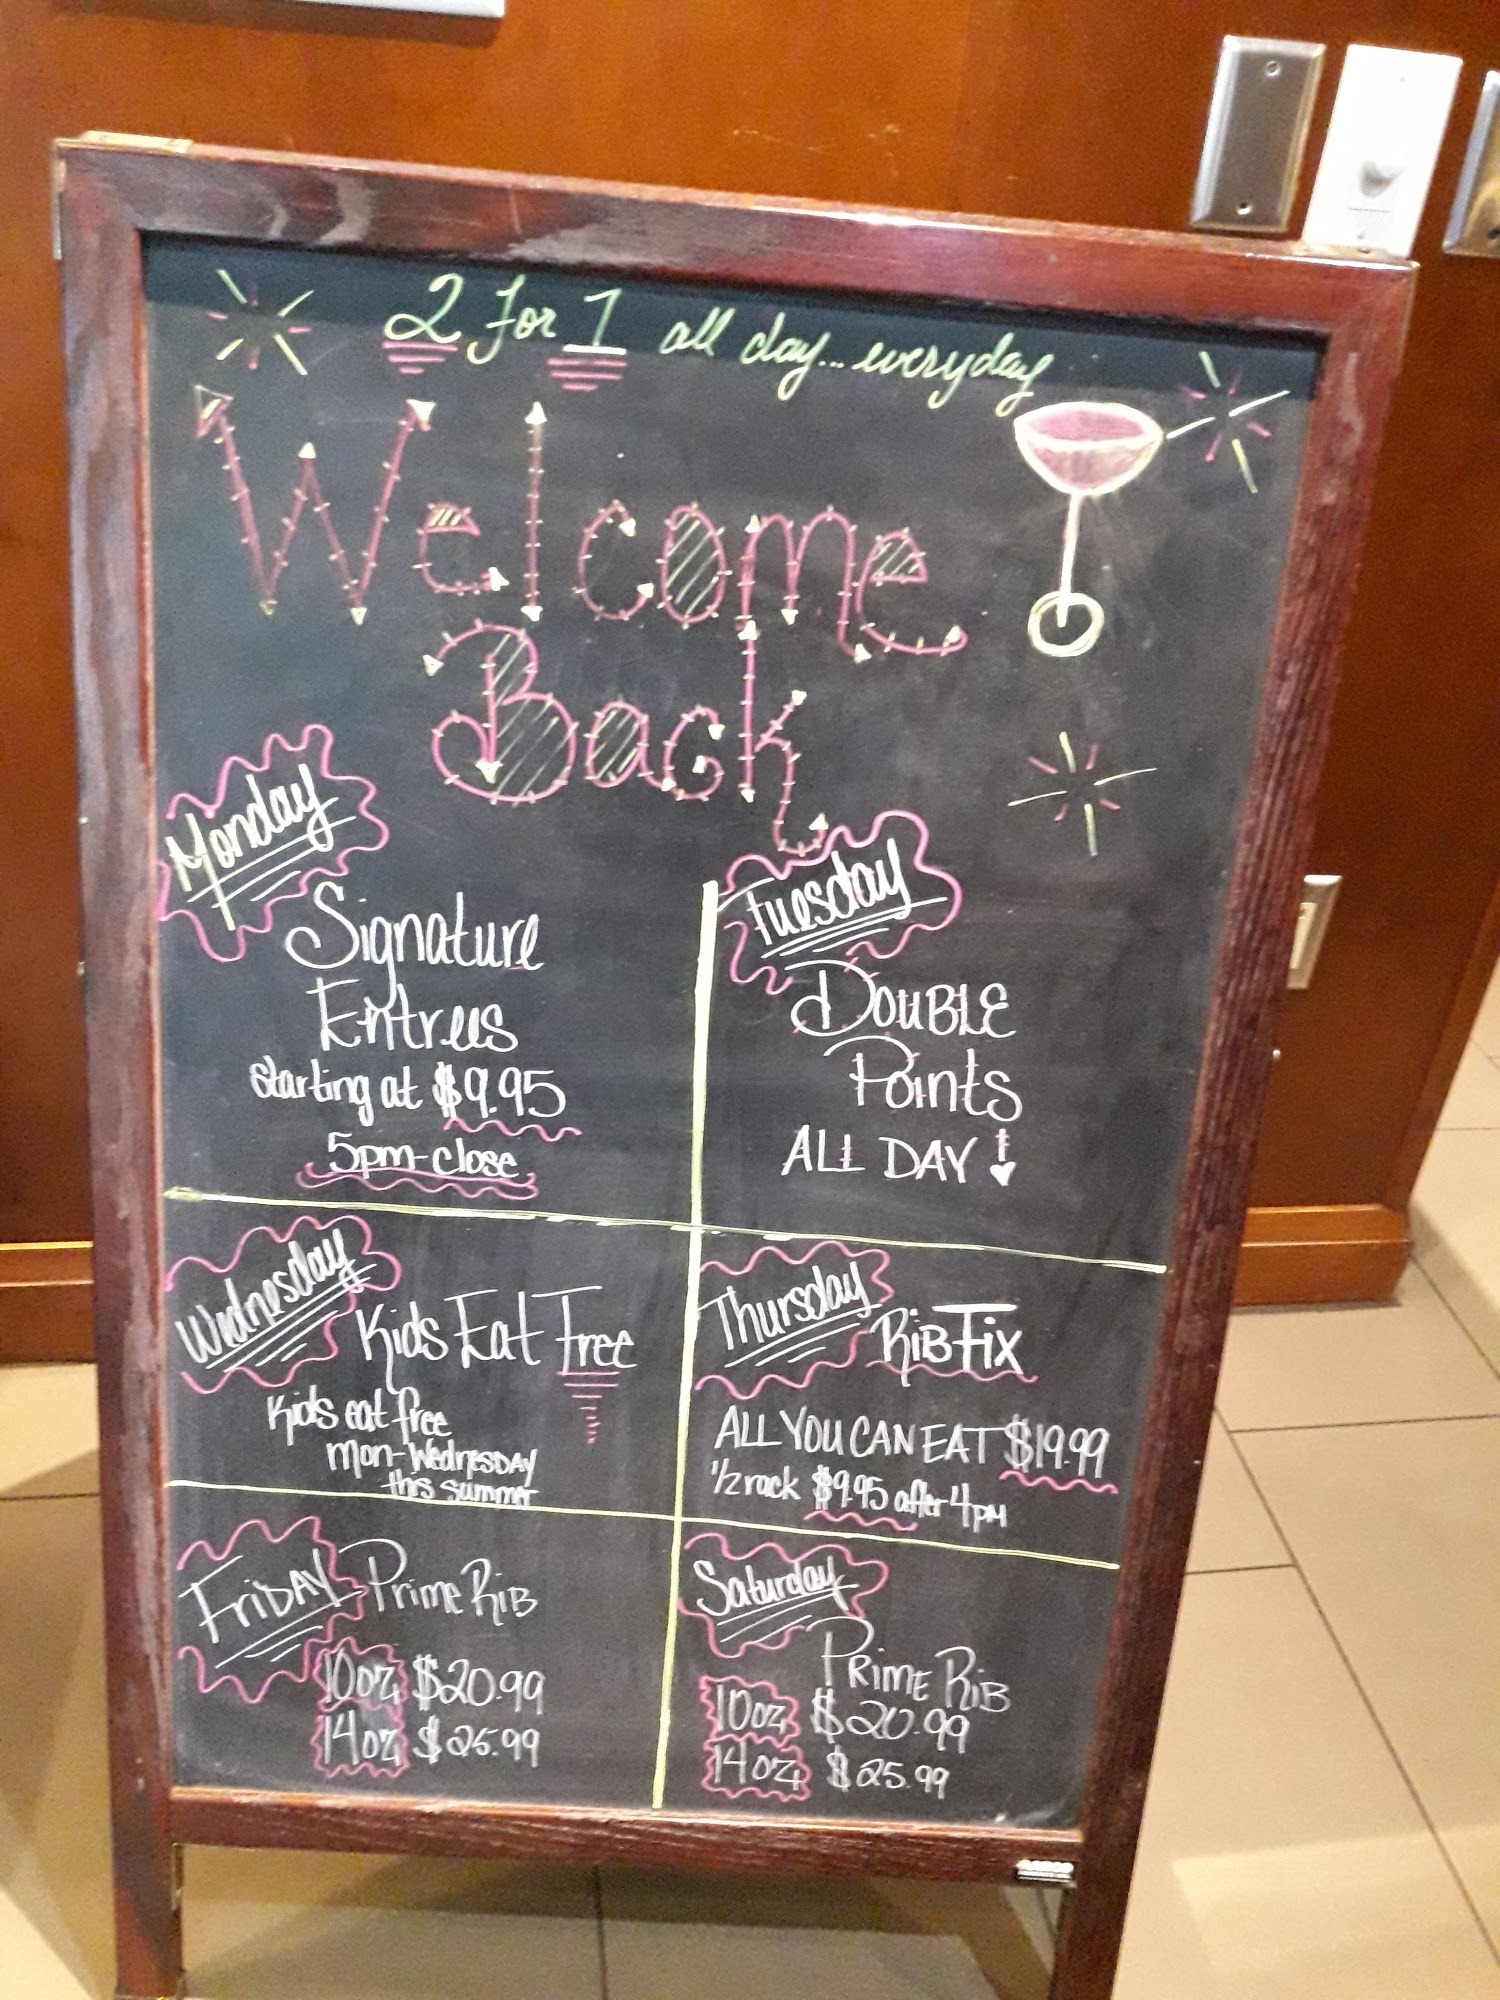 2 for 1 all day... everyday
Welcome
Back
Monday
Signature
Entrees
starting at $9.95
5pm-close
Tuesday
DOUBLE
Points
ALL DAY!
Wednesday
Kids Eat Free
Kids eat free
Mon-Wednesday
this summer
Thursday
RIB FIX
ALL YOU CAN EAT $19.99
1/2 rack $9.95 after 4pm
FRIDAY
Prime Rib
10oz $20.99
14oz $25.99
Saturday
Prime Rib
10oz $20.99
14oz $25.99